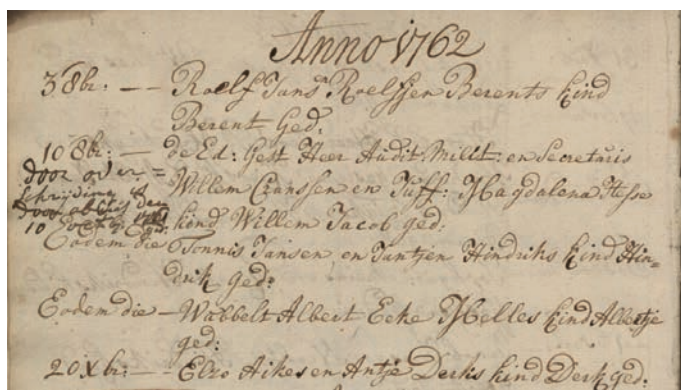 Anno 1762
3 8br: — — Roelf Jans en Roelfjen Berents kind
Berent Ged:
10 8br: — de Ed: Gest Heer Audit: Milit: en Secretaris
door over=
Willem Cranssen en Juff: Magdalena Hesse
schrijving is
door abuis den
kind Willem Jacob ged:
10
Eodem die Tonnis Jansen en Jantjen Hindriks kind Hin=
drik ged:
Eodem die — Wabbelt Albert Ecke Melles kind Albertje
ged:
20 Xbr: — Elzo Aikes en Antje Derks kind Derk ged: